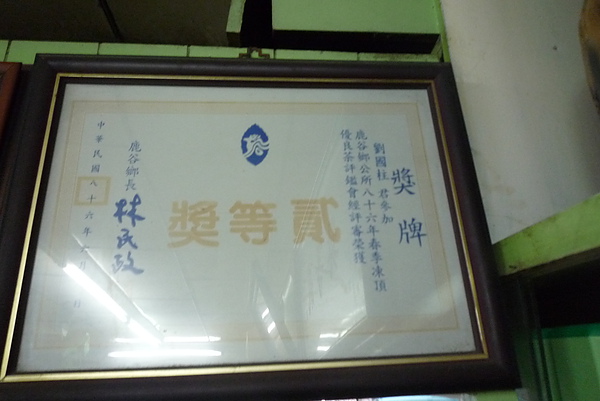 獎牌
劉國柱 君參加
鹿谷鄉公所八十六年春季凍頂
優良茶評鑑會經評審榮獲
貳等獎
鹿谷鄉長 林民政
中華民國八十六年 月 日